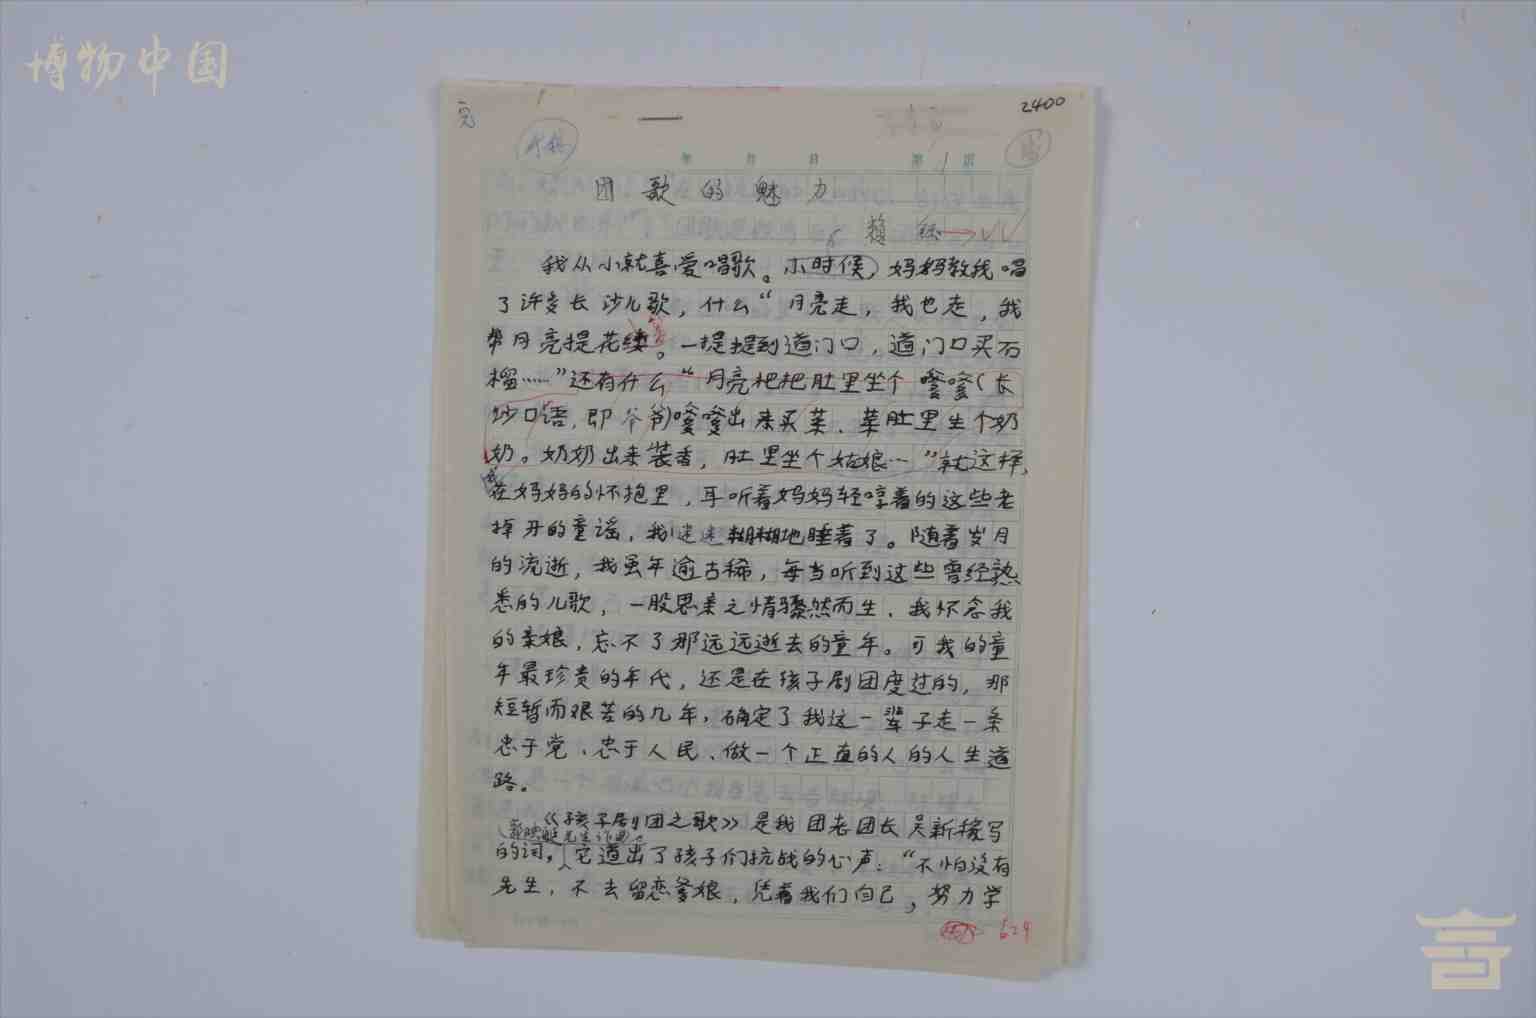 博物中国
完
2400
年 月 日 第 1 页
团歌的魅力
我从小就喜爱唱歌。小时候，妈妈教我唱
了许多长沙儿歌，什么“月亮走，我也走，我
帮月亮提花篓。一提提到道门口，道门口买石
榴……”还有什么“月亮粑粑肚里坐个嗲嗲（长
沙口语，即爷爷）嗲嗲出来买菜、菜肚里坐个奶
奶。奶奶出来装香，肚里坐个姑娘…”就这样，
在妈妈的怀抱里，耳听着妈妈轻哼着的这些老
掉牙的童谣，我迷迷糊糊地睡着了。随着岁月
的流逝，我虽年逾古稀，每当听到这些曾经熟
悉的儿歌，一股思亲之情骤然而生，我怀念我
的亲娘，忘不了那远远逝去的童年。可我的童
年最珍贵的年代，还是在孩子剧团度过的，那
短暂而艰苦的几年，确定了我这一辈子走一条
忠于党、忠于人民、做一个正直的人的人生道
路。
《孩子剧团之歌》是我团老团长吴新稼写
先生作曲。
的词，它道出了孩子们抗战的心声：“不怕没有
先生，不去留恋爹娘，凭着我们自己，努力学
629